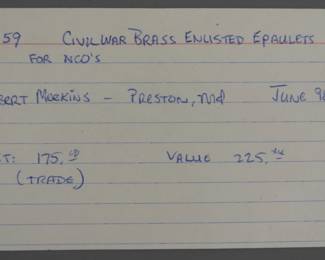 59 CIVIL WAR BRASS ENLISTED EPAULETS
FOR NCO'S
BERT MEEKINS - PRESTON, Md JUNE 9
T: 175.00 VALUE 225.00
(TRADE)